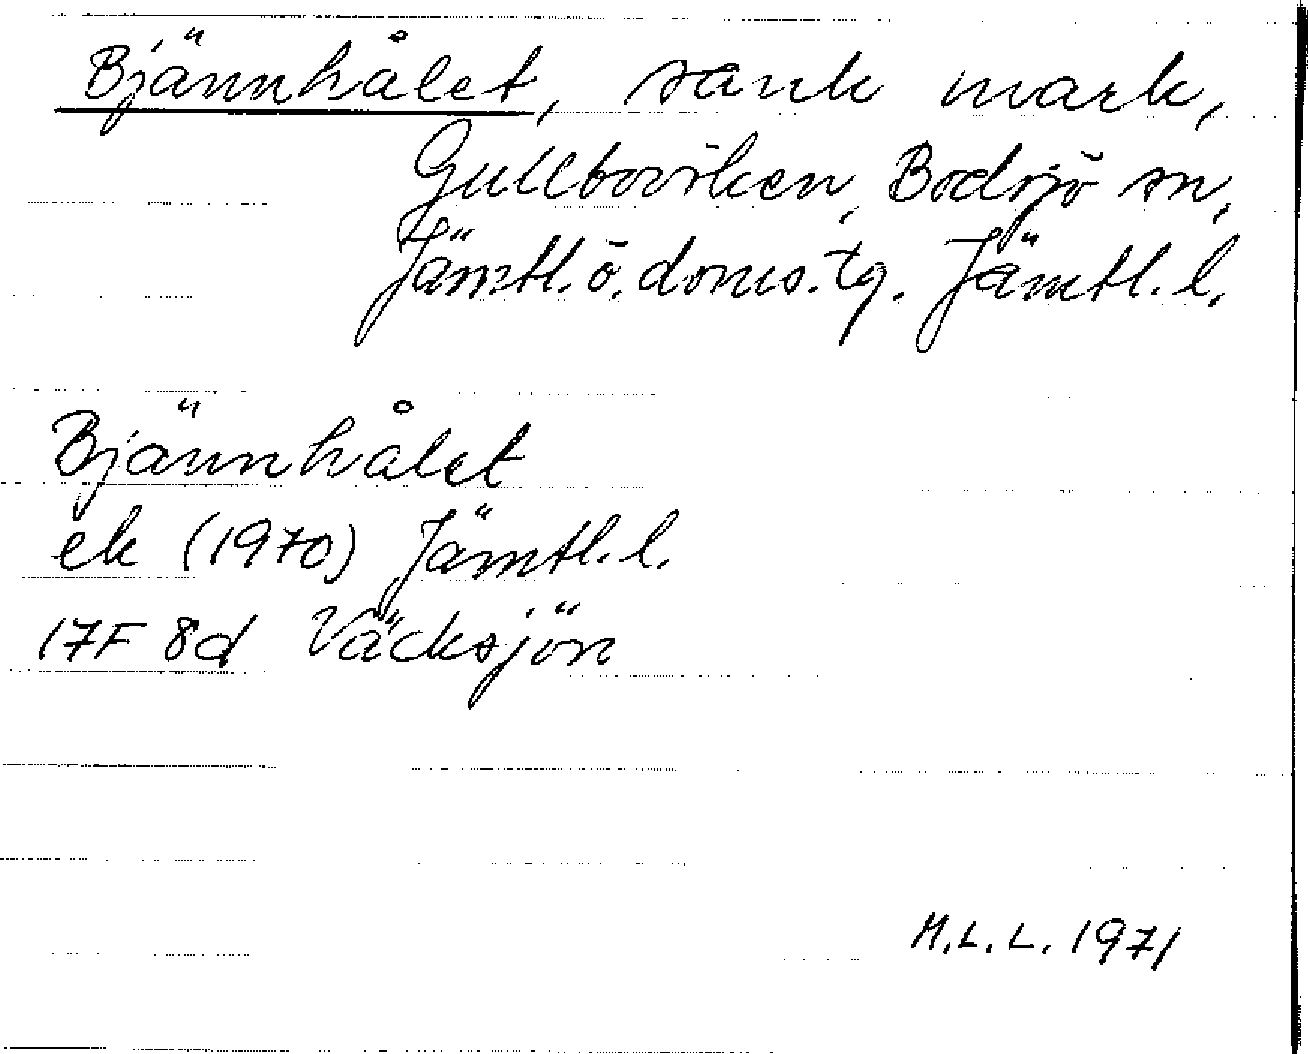 Bjännhålet, sank mark,
Gullboviken, Bodsjö sn,
Jämtl. ö. doms. tg. Jämtl. l.
Bjännhålet
ek (1970) Jämtl. l.
17F 8d Väcksjön
M.L.L. 1971